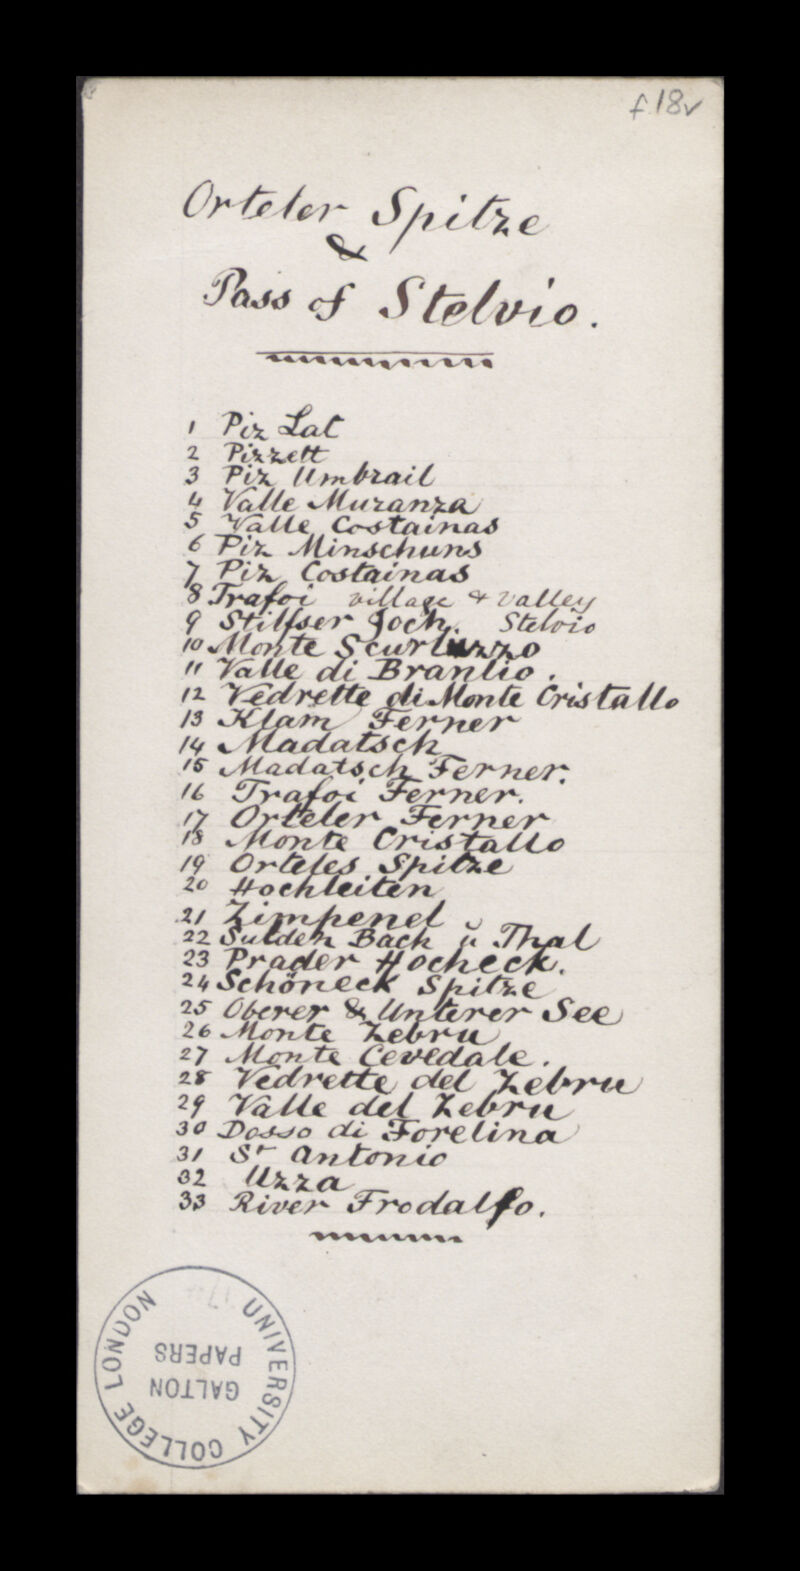 f.18v
Orteler Spitze
&
Pass of Stelvio.
1 Piz Lat
2 Pizzett
3 Piz Umbrail
4 Valle Muranza
5 Valle Costainas
6 Piz Minschuns
7 Piz Costainas
8 Trafoi village & valley
9 Stilfser Joch. Stelvio
10 Monte Scurluzzo
11 Valle di Branlio.
12 Vedrette di Monte Cristallo
13 Klam Ferner
14 Madatsch
15 Madatsch Ferner.
16 Trafoi Ferner.
17 Orteler Ferner
18 Monte Cristallo
19 Orteles Spitze
20 Hochleiten
21 Zimpenel
22 Sulden Bach u Thal
23 Prader Hocheck.
24 Schöneck Spitze
25 Oberer & Unterer See
26 Monte Zebru
27 Monte Cevedale.
28 Vedrette del Zebru
29 Valle del Zebru
30 Dosso di Forelina
31 St Antonio
32 Uzza
33 River Frodalfo.
UNIVERSITY COLLEGE LONDON
GALTON
PAPERS